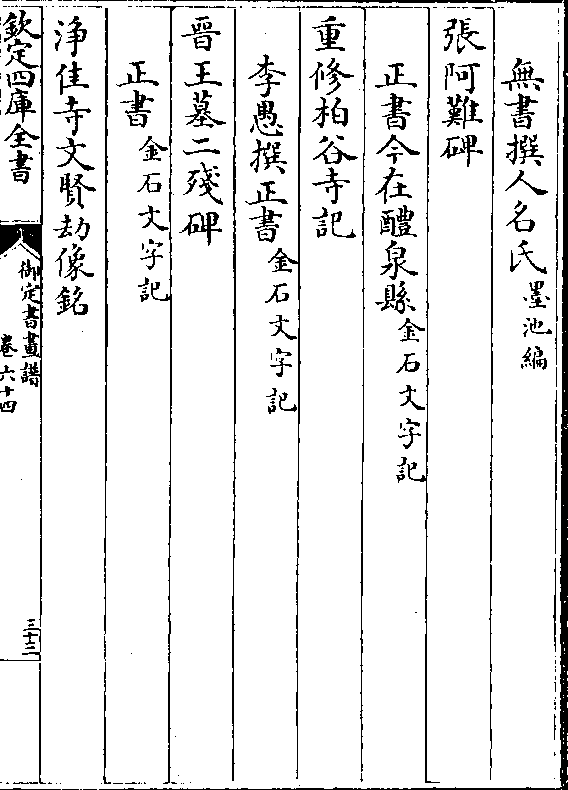 無書撰人名氏墨池編
張阿難碑
正書今在醴泉縣金石文字記
重修柏谷寺記
李愚撰正書金石文字記
晉王墓二殘碑
正書金石文字記
淨住寺文賢劫像銘
欽定四庫全書
御定書畫譜
卷六十四
三十二